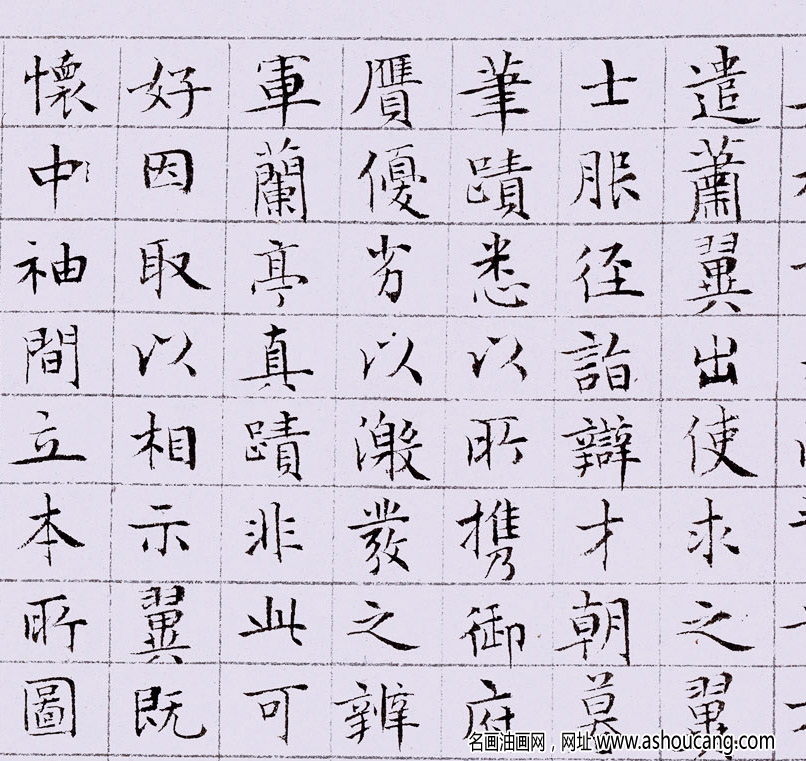 遣蕭翼出使求之翼
士服径詣辯才朝莫
筆蹟悉以所携御府
贋優劣以激發之辨
軍蘭亭真蹟非此可
好因取以相示翼既
懷中袖間立本所圖
名画油画网，网址 www.ashoucang.com